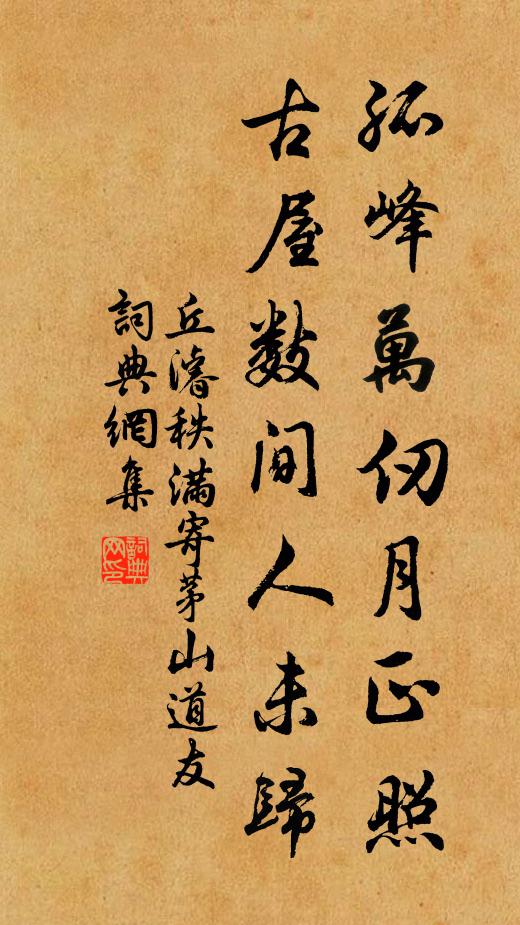 孤峰萬仞月正照
古屋数間人未歸
丘濬秩滿寄茅山道友
詞典網集
詞典
网印